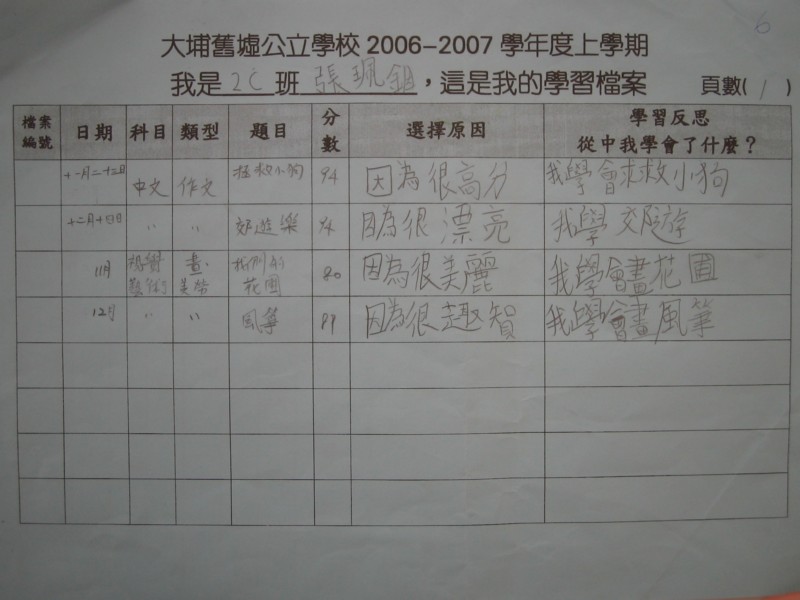 6
大埔舊墟公立學校 2006-2007 學年度上學期
我是 2C 班 張珮，這是我的學習檔案 頁數( 1 )
檔案編號 日期 科目 類型 題目 分數 選擇原因 學習反思 從中我學會了什麼？
十一月二十二日 中文 作文 拯救小狗 94 因為很高分 我學會求救小狗
十二月十日 〃 〃 郊遊樂 94 因為很漂亮 我學 交遊
11月 視覺藝術 畫 我們的花園 80 因為很美麗 我學會畫花園
12月 〃 〃 風箏 89 因為很趣智 我學會畫風箏